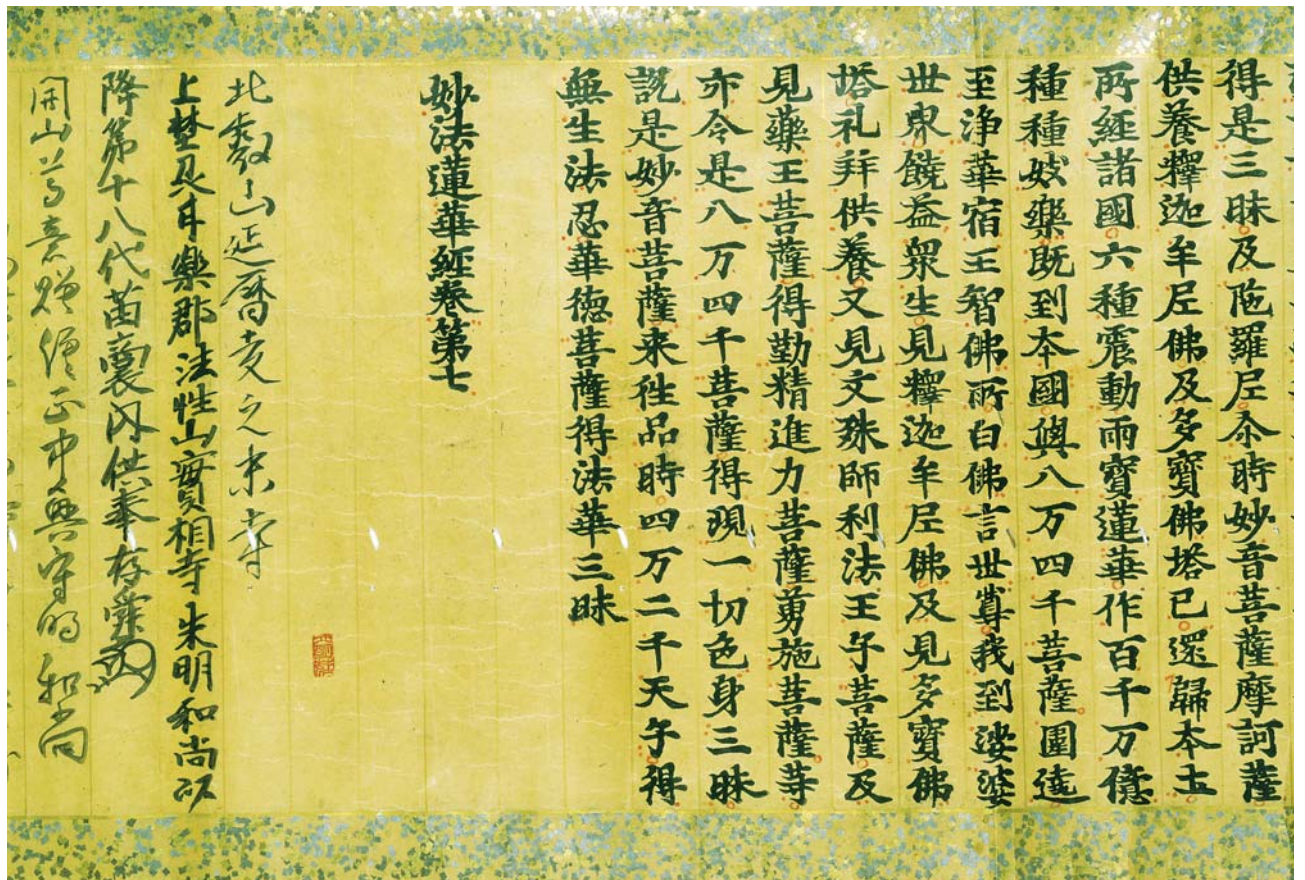 得是三昧及陁羅尼尒時妙音菩薩摩訶薩
供養釋迦牟尼佛及多寶佛塔已還歸本土
所經諸國六種震動雨寶蓮華作百千万億
種種妓樂既到本國與八万四千菩薩圍遶
至淨華宿王智佛所白佛言世尊我到娑婆
世界饒益衆生見釋迦牟尼佛及見多寶佛
塔礼拜供養又見文殊師利法王子菩薩及
見藥王菩薩得勤精進力菩薩勇施菩薩等
亦令是八万四千菩薩得現一切色身三昧
說是妙音菩薩来往品時四万二千天子得
無生法忍華德菩薩得法華三昧
妙法蓮華經卷第七
山延曆寺之末寺
上埜國甘樂郡法性山實相寺朱明和尚以
降第十八代苗裔内供奉存
開山贈僧正中興和尚